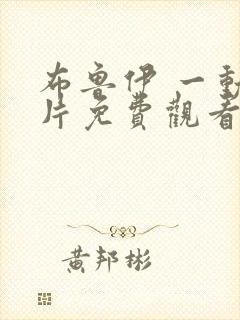 布魯伊 一動
片免費觀看
黃邦彬